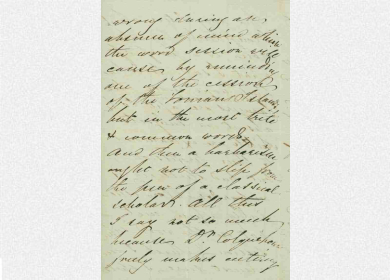 wrong during an
absence of mind which
the word session will
cause by reminding
one of the cession
of the Ionian Islands
but in the most trite
& common words
And then a barbarism
ought not to slip from
the pen of a classical
scholar. All this
I say not so much
because Dr. Colquhoun
merely makes